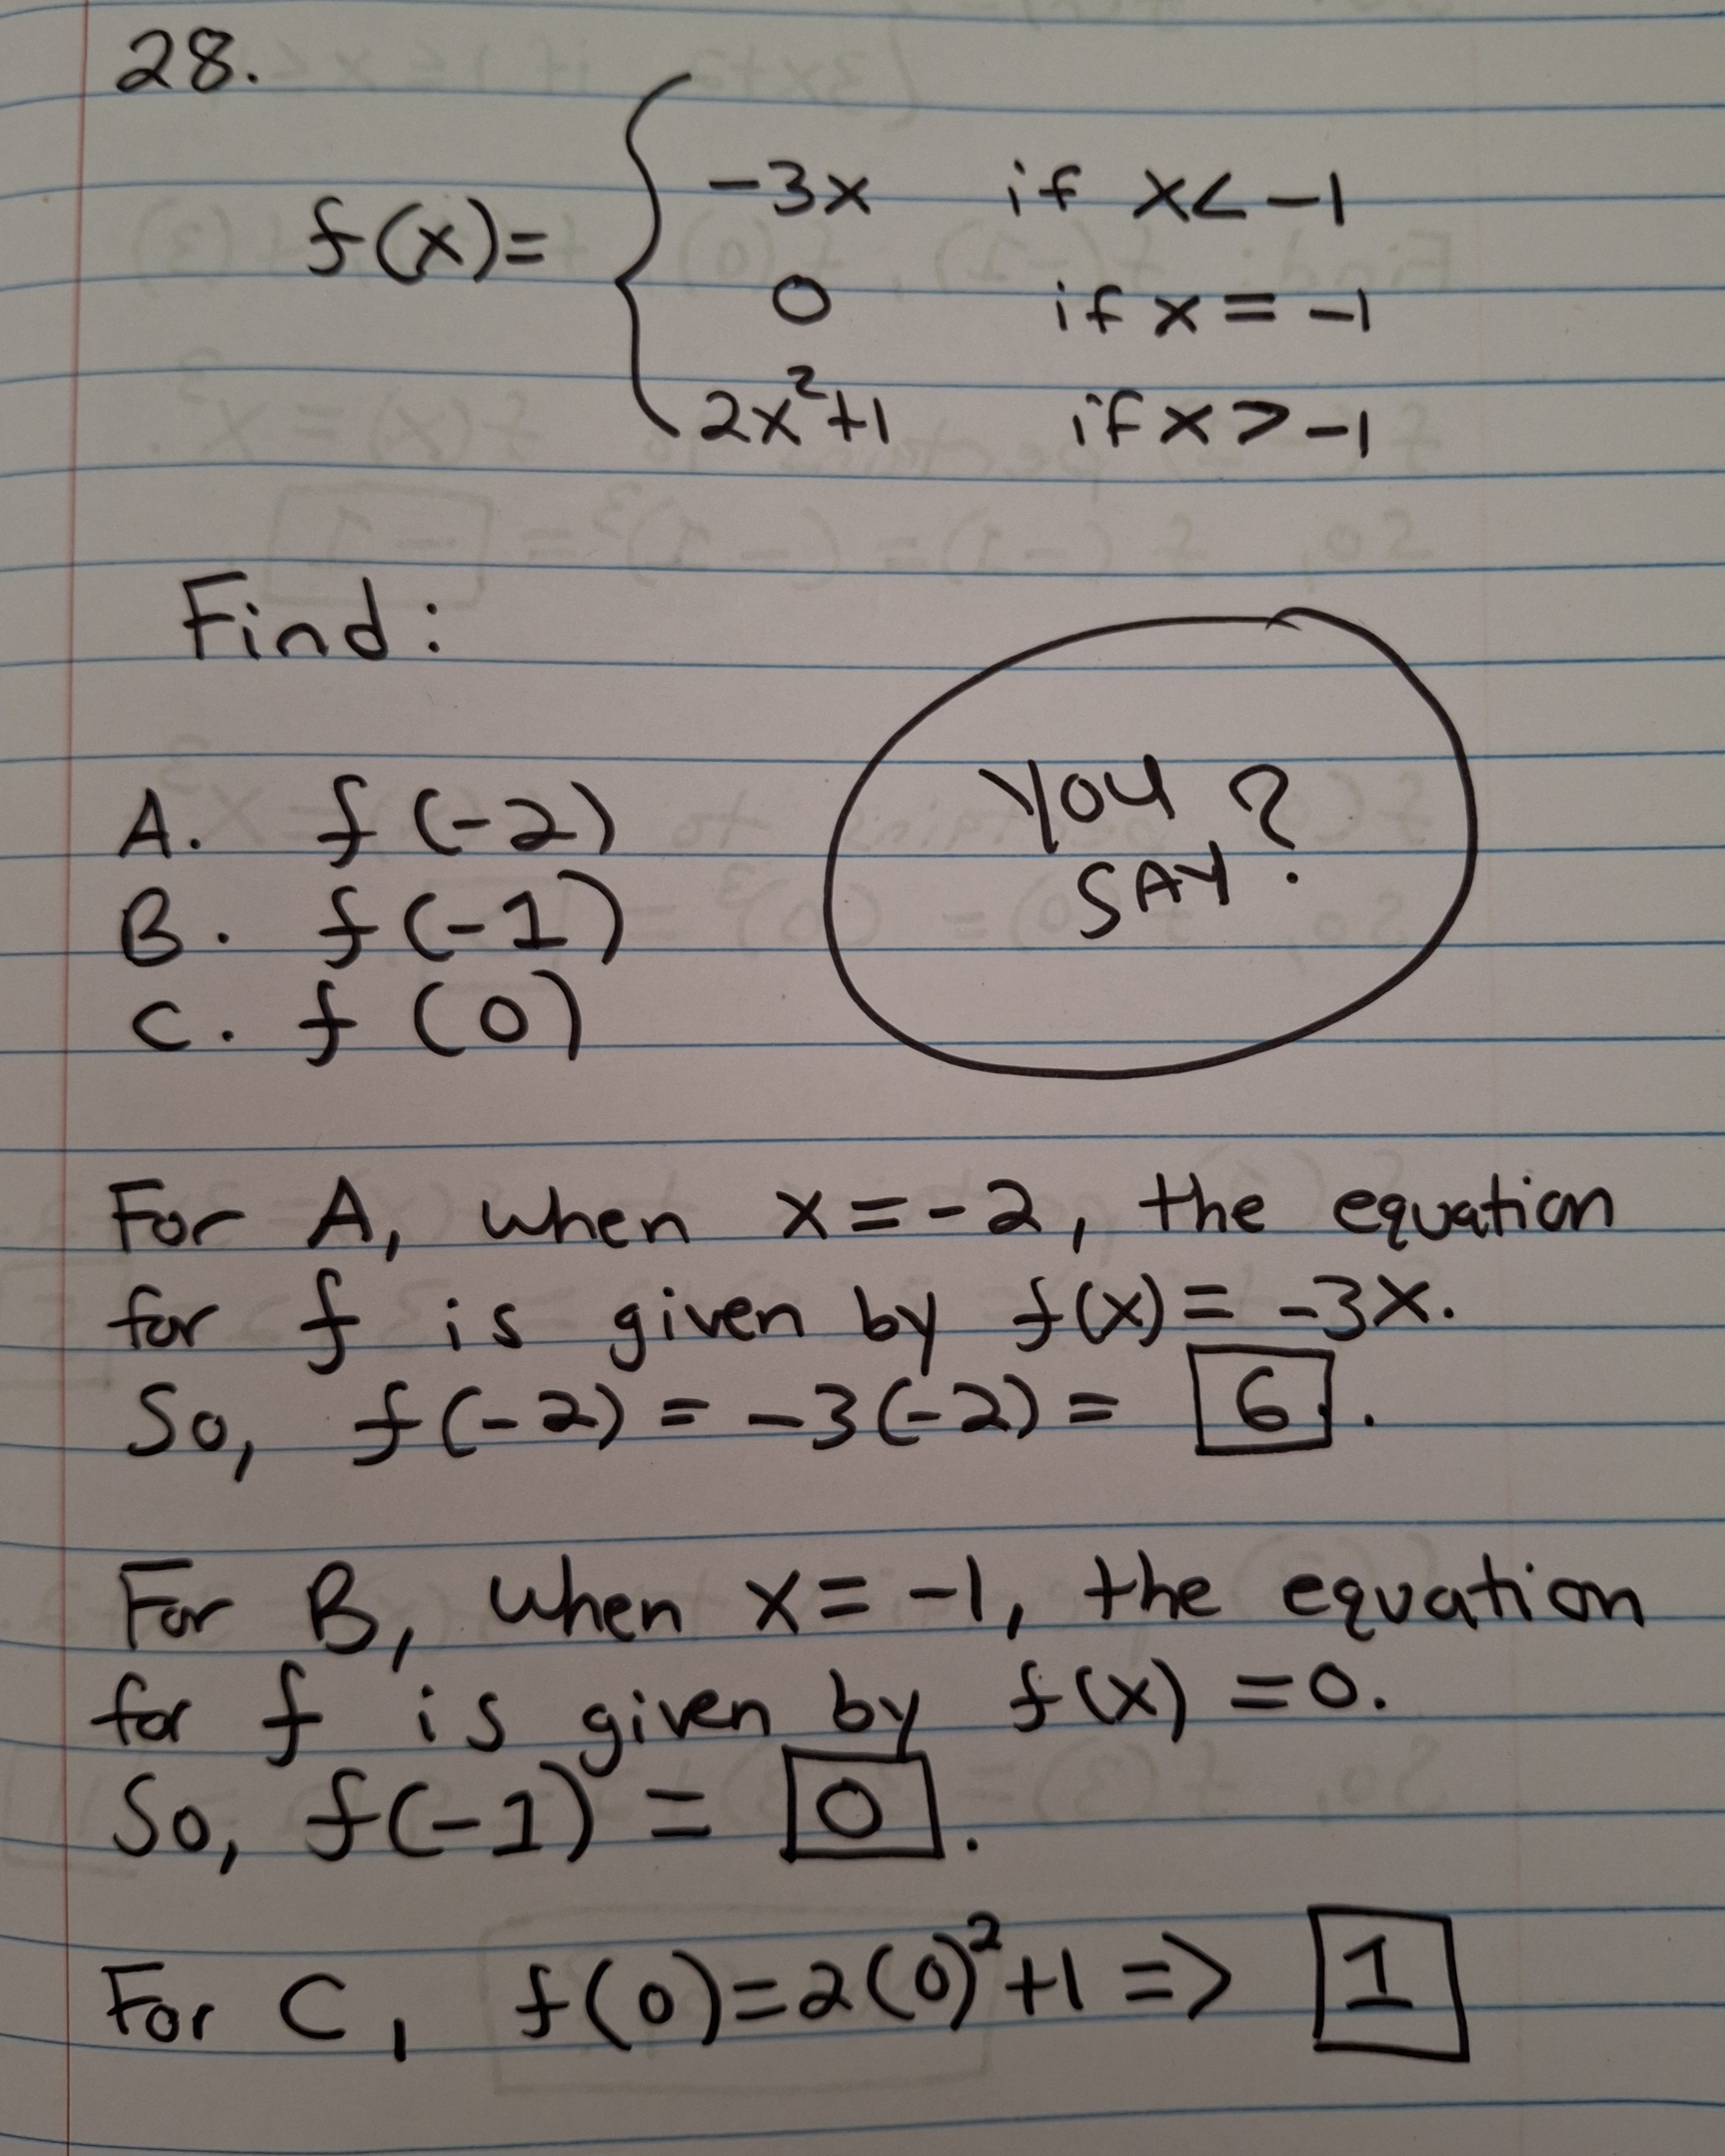 28.
f(x)= { -3x if x< -1
0 if x = -1
2x²+1 if x > -1
Find:
A. f(-2)
B. f(-1)
C. f(0)
YOU SAY?
For A, when x=-2, the equation
for f is given by f(x)= -3x.
So, f(-2) = -3(-2) = 6.
For B, when x= -1, the equation
for f is given by f(x) =0.
So, f(-1) = 0.
For C, f(0)=2(0)²+1 => 1